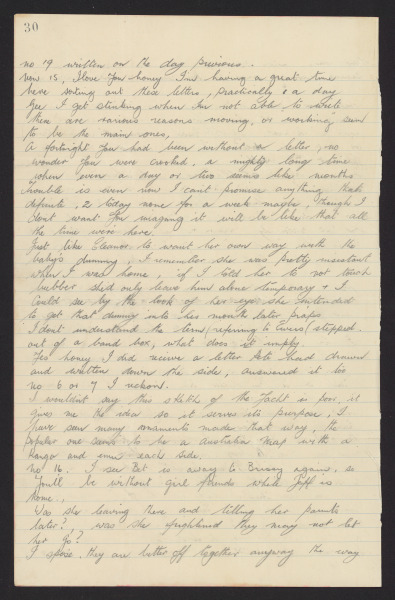 30
no 19 written on the day previous.
now 15, I love you honey I'm having a great time
here sorting out these letters, practically 2 a day
Gee I get stinking when I'm not able to write
there are various reasons moving, or working seem
to be the main ones,
A fortnight you had been without a letter, no
wonder you were crooked, a mighty long time
when even a day or two seems like months
Trouble is even now I cant promise anything that's
definite, 2 today none for a week maybe, though I
dont want you imaging it will be like that all
the time we're here.
Just like Eleanor to want her own way with the
baby's dummy, I remember she was pretty insistent
when I was home, if I told her to not touch
bubber she'd only leave him alone temporary & I
could see by the look of her eyes she intended
to get that dummy into his mouth later p'raps
I dont understand the term, referring to Ewins (stepped
out of a band box, what does it imply.
Yes honey I did receive a letter Pete had drawn
and written down the side, answered it too
no 6 or 7 I reckon.
I wouldn't say this sketch of the Yacht is poor, it
gives me the idea so it serves its purpose, I
have seen many ornaments made that way, the
popular one seems to be a Australia map with a
Kango and emu each side.
No 16. I see Bet is away to Brissy again, so
you'll be without girl friends while Jeff is
home,
Was she leaving there and telling her parents
later? was she frightened they may not let
her go?
I s'pose they are better off together anyway the way